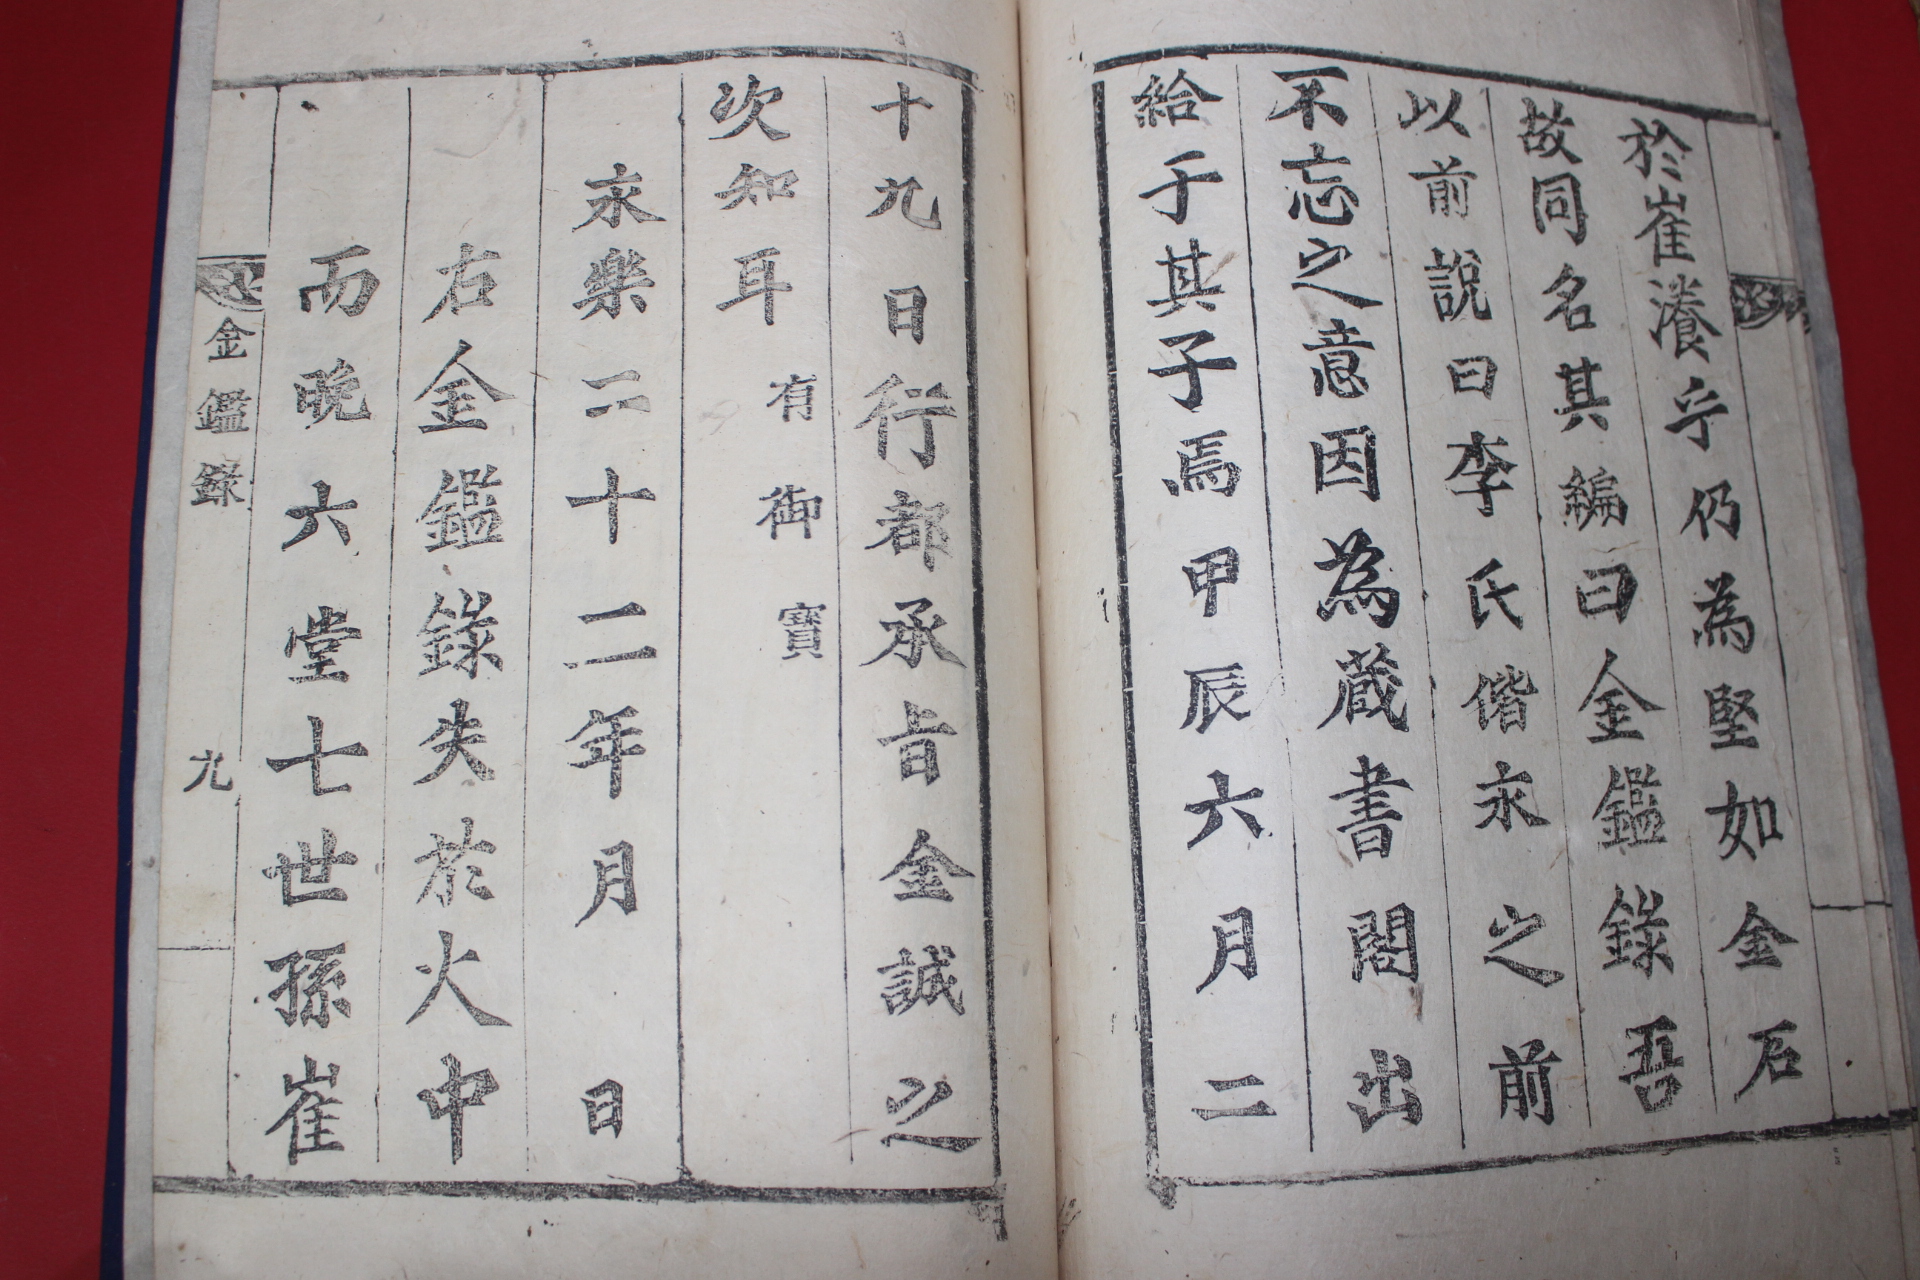 於崔瀁乎仍為堅如金石
故同名其編曰金鑑錄吾
以前說曰李氏偕永之前
不忘之意因為蔵書閤出
給于其子焉甲辰六月二
十九日行都承旨金誠之
次知耳
有御寶
永樂二十二年月日
右金鑑錄失於火中
而晩六堂七世孫崔
金鑑錄
九